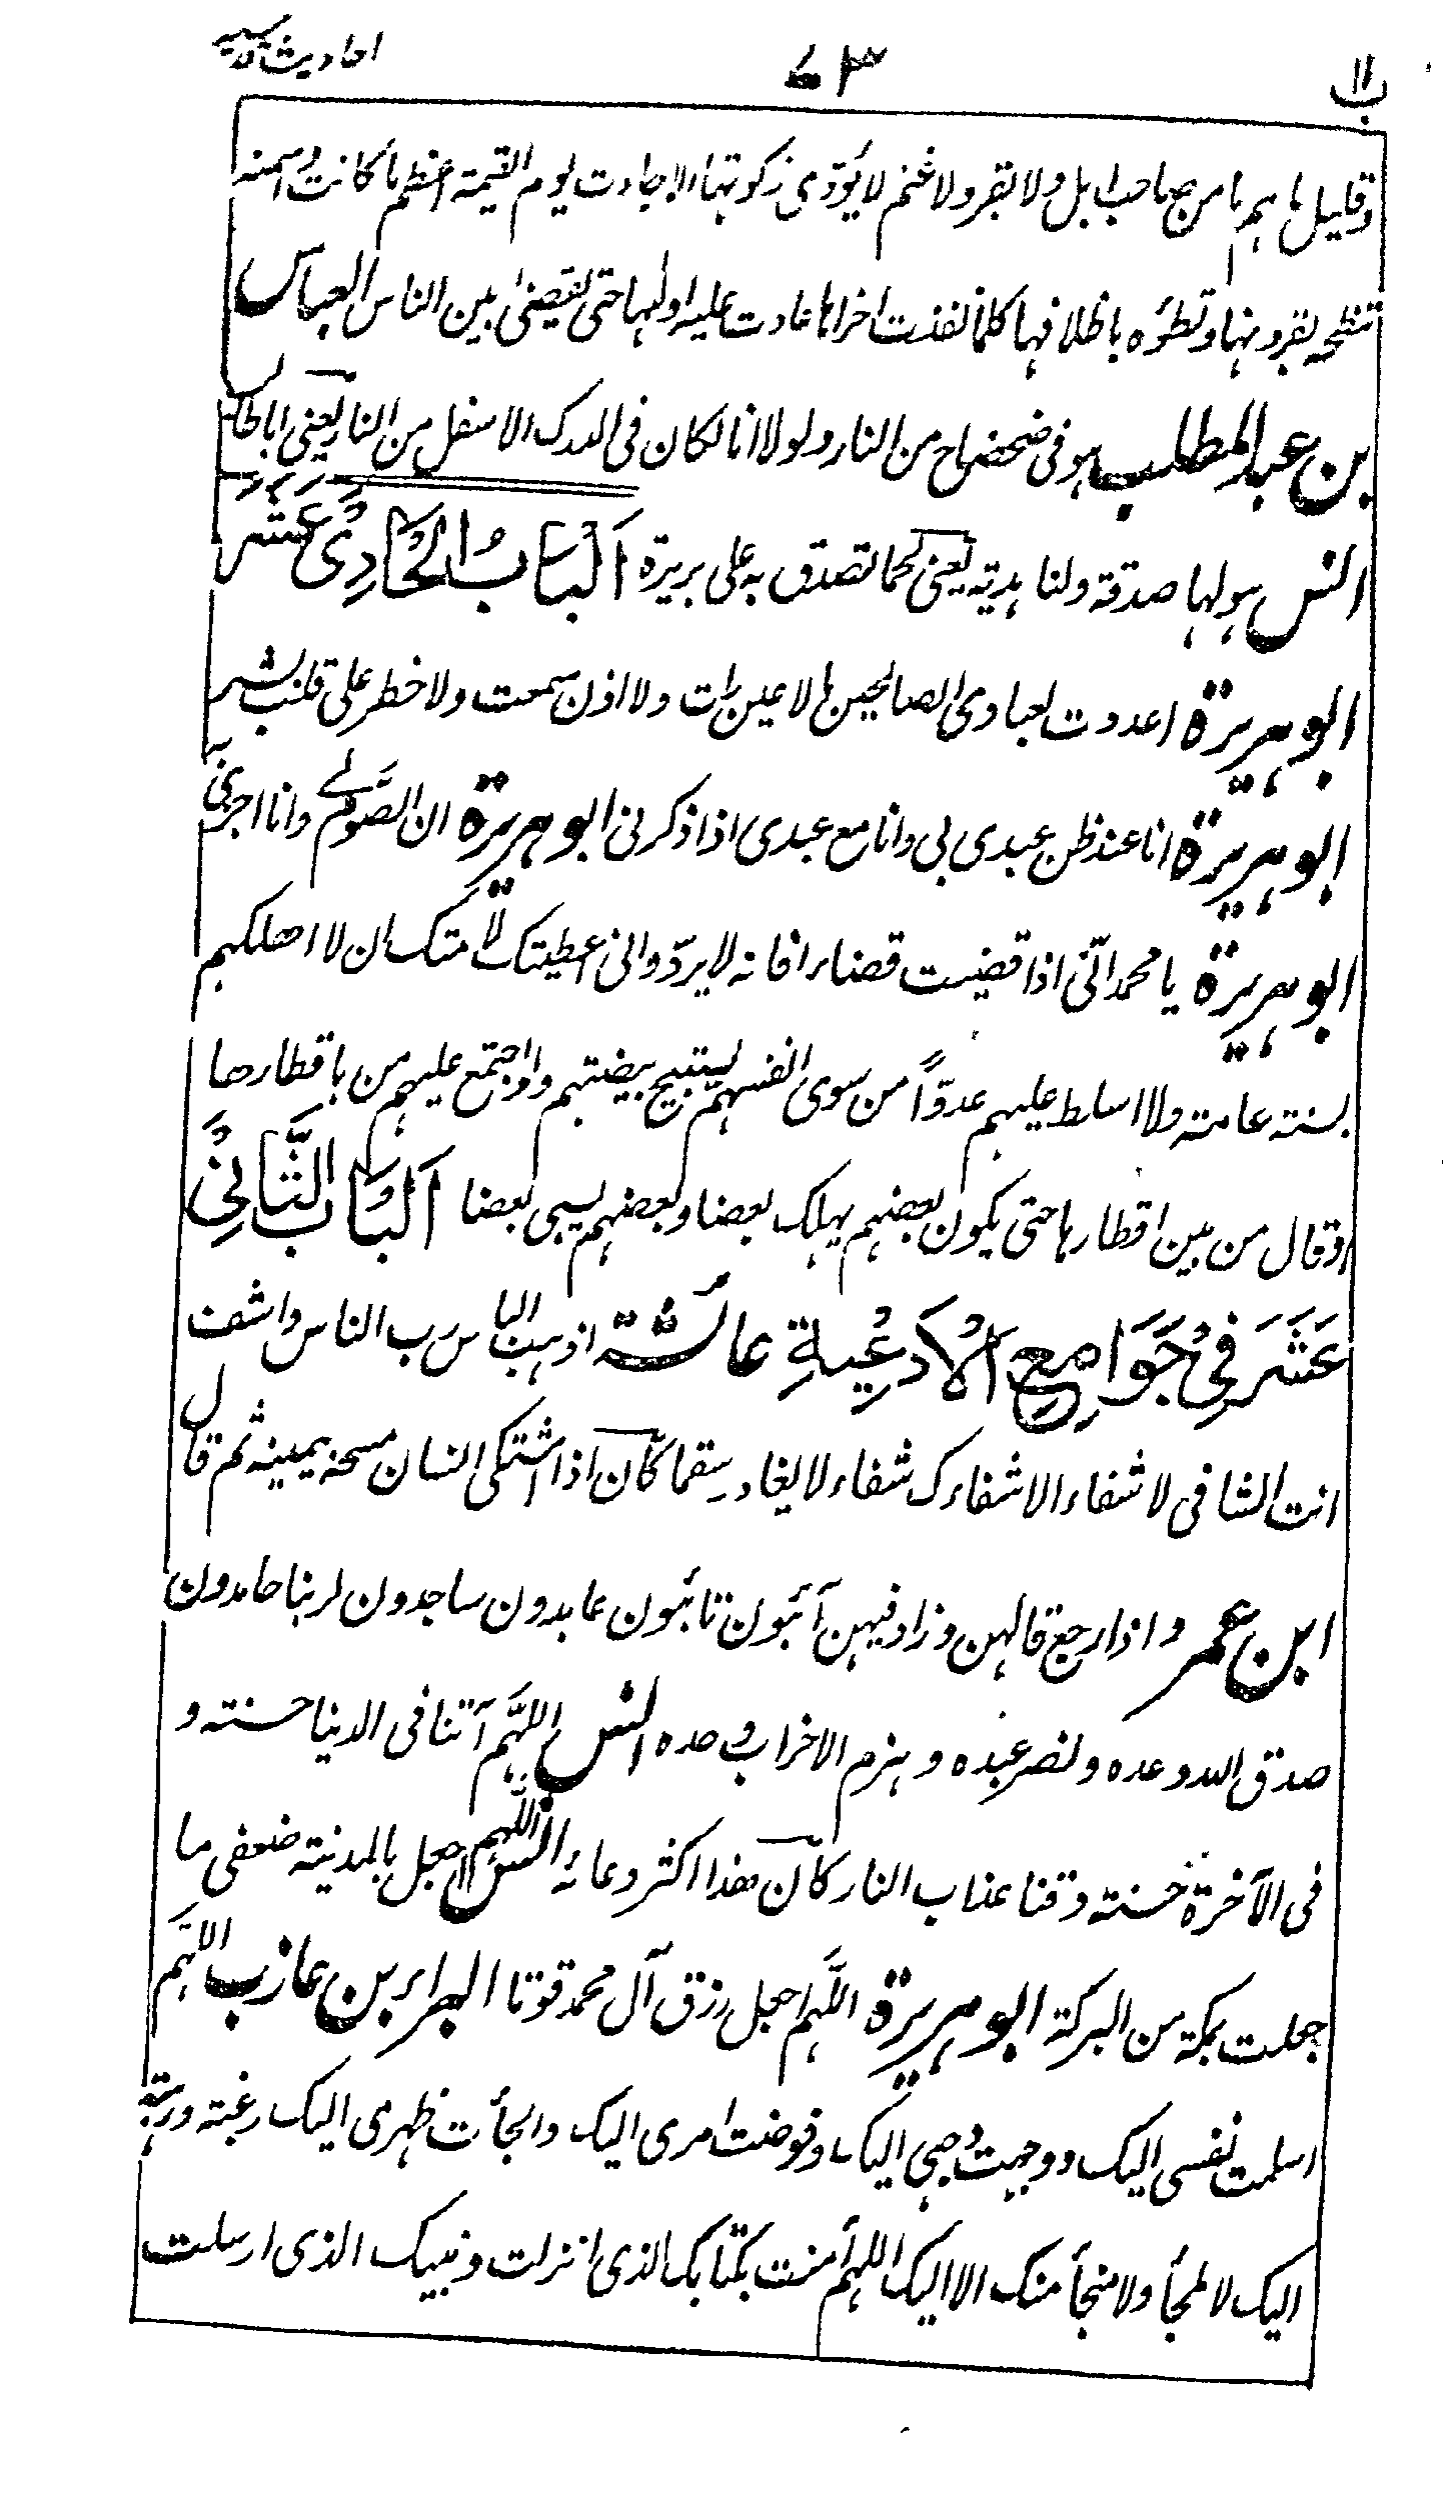 ب ١١ ٧٣ احادیث قدسیہ
وقلیل ما ہم ما من صاحب ابل ولا بقر ولا غنم لا یؤدی زکوتہا الا جاءت یوم القیٰمۃ اعظم ما کانت واسمنہ
تنطحہ بقرونہا وتطؤہ باظلافہا کلما نفذت اخراہا عادت علیہ اولہا حتی یقضیٰ بین الناس العباس
بن عبد المطلب ہو فی ضحضاح من النار ولولا انا لکان فی الدرک الاسفل من النار یعنی ابا طالب
انس ہو لہا صدقۃ ولنا ہدیۃ یعنی لحما تصدق بہ علی بریرۃ اَلْبَابُ الْحَادِیْ عَشَرَ
ابو ہریرۃ اعددت لعبادی الصالحین ما لا عین رات ولا اذن سمعت ولا خطر علی قلب بشر
ابو ہریرۃ انا عند ظن عبدی بی وانا مع عبدی اذا ذکرنی ابو ہریرۃ ان الصَّوم لی وانا اجزی بہ
ابو ہریرۃ یا محمد انّی اذا قضیت قضاء فانہ لا یردّ وانی اعطیتک لامتک ان لا اھلکہم
بسنۃ عامۃ ولا اسلط علیہم عدوّاً من سوی انفسہم یستبیح بیضتہم ولو اجتمع علیہم من باقطارھا
او قال من بین اقطارہا حتی یکون بعضہم یہلک بعضا وبعضہم یسبی بعضا اَلْبَابُ الثَّانِیْ
عَشَرَ فِیْ جَوَامِعِ الْاَدْعِیَةِ عائشۃ اذہب الباس رب الناس واشف
انت الشافی لا شفاء الا شفاءک شفاء لا یغادر سقما کان اذا اشتکی انسان مسحہ بیمینہ ثم قال
ابن عمر واذا رجع قالہن وزاد فیہن آئبون تائبون عابدون ساجدون لربنا حامدون
صدق اللہ وعدہ ونصر عبدہ وہزم الاحزاب وحدہ انس اللہّم آتنا فی الدنیا حسنۃ و
فی الآخرۃ حسنۃ وقنا عذاب النار کان ھذا اکثر دعائہ انس اللّہم اجعل بالمدینۃ ضعفی ما
جعلت بمکۃ من البرکۃ ابو ہریرۃ اللّہم اجعل رزق آل محمد قوتا البراء بن عازب اللہّم
اسلمت نفسی الیک ووجہت وجہی الیک وفوضت امری الیک والجأت ظہری الیک رغبۃ ورہبۃ
الیک لا ملجأ ولا منجأ منک الا الیک اللہم أمنت بکتابک الذی انزلت ونبیک الذی ارسلت